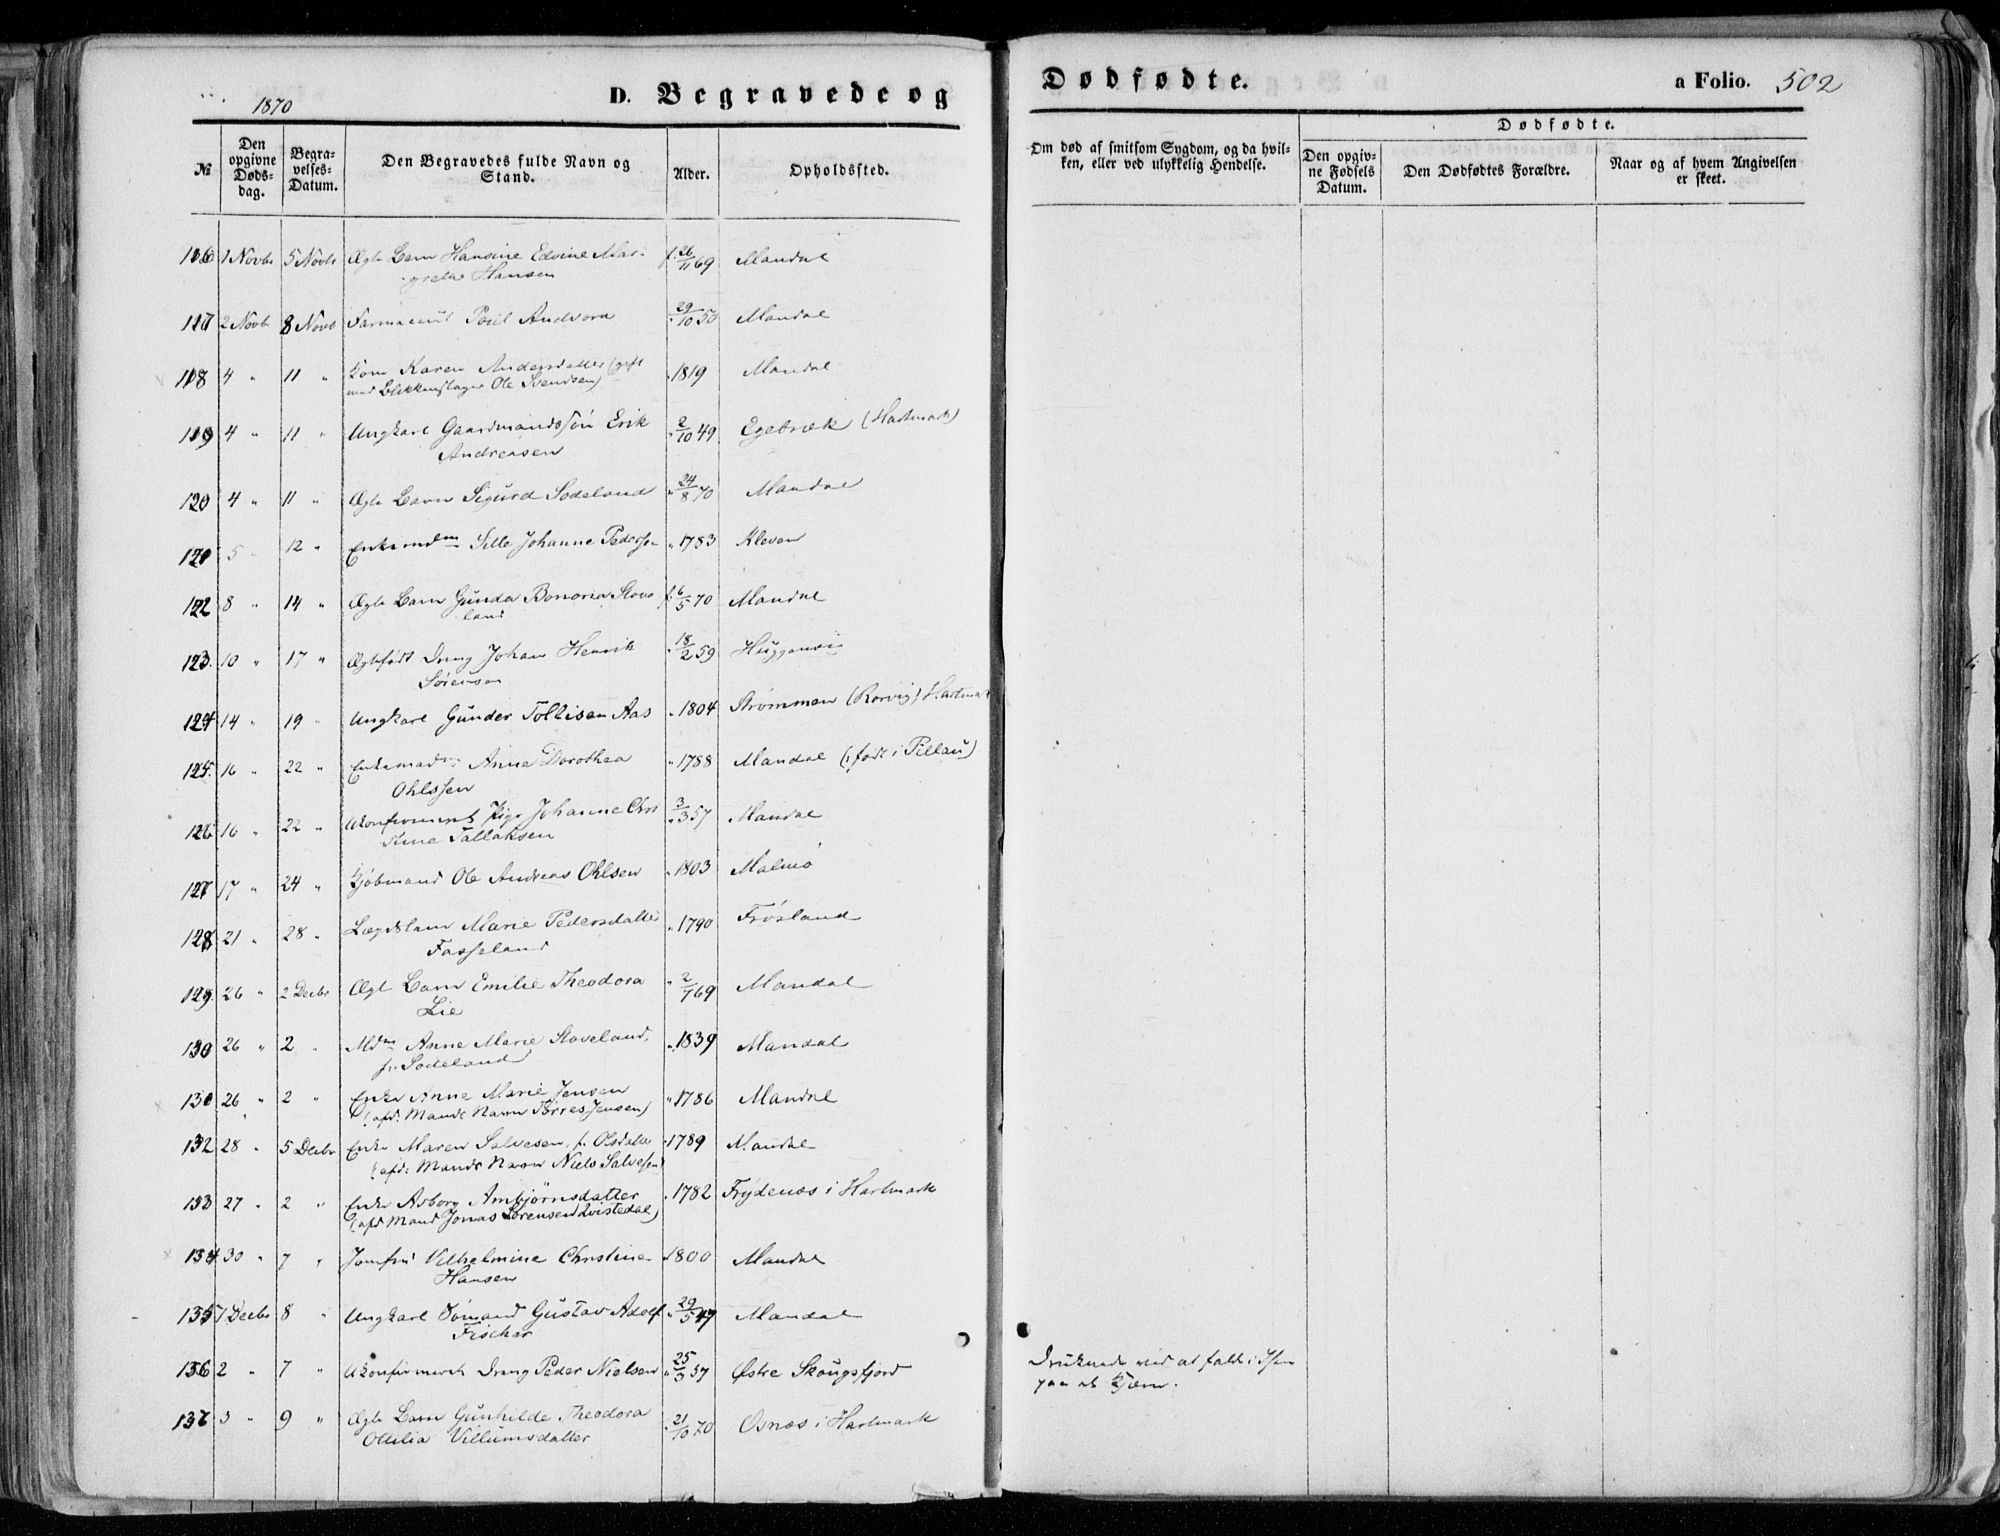 1870
D. Begravede og
Dødfødte.
a Folio. 502
№
Den opgivne Dødsdag.
Begravelses-Datum.
Den Begravedes fulde Navn og Stand.
Alder.
Opholdssted.
Om død af smitsom Sygdom, og da hvilken, eller ved ulykkelig Hendelse.
Dødfødte.
Den opgivne Fødsels Datum.
Den Dødfødtes Forældre.
Naar og af hvem Angivelsen er skeet.
116 1 Novbr 5 Novbr Ægte Barn Hansine Edvine Mar- f. 26/11 69 Mandal
grethe Hansen
117 2 Novbr 8 Novb Farmaceut Poul Andvord 29/10 50 Mandal
118 4 " 11 " Kone Karen Andersdatter (gift " 1819 Mandal
med Blikkenslager Ole Svendsen)
119 4 " 11 " Ungkarl Gaardmandssøn Erik " 2/10 49 Egebræk (Hartmark)
Andreasen
120 4 " 11 " Ægte Barn Sigurd Sodeland " 24/8 70 Mandal
121 5 " 12 " Enkemdm Sille Johanne Pedersen " 1783 Kleven
122 8 " 14 " Ægte Barn Gunda Bonoria Stove- f. 6/5 70 Mandal
land
123. 10 " 17 " Ægtefødt Dreng Johan Henrik " 18/2 59
Sørensen
124 14 " 19 " Ungkarl Gunder Tollisen Aas " 1804 Strømmen (Rorvig) Hartmark
125. 16 " 22 " Enkemadm: Anne Dorothea " 1788 Mandal (født i Pillau)
Ohlssen
126 16 " 22 " Ukonfirmert Pige Johanne Chri " 3/3 57 Mandal
stine Tallaksen
127 17 " 24 " Kjøbmand Ole Andreas Ohlsen " 1803 Malmø
128 21 " 28 " Lægdslem Marie Pedersdatter " 1790 Frøsland
Fasseland
129. 26 " 2 Decbr Ægte Barn Emilie Theodora " 2/7 69 Mandal
Lie
130 26 " 2 " Mdm Anne Marie Stoveland, " 1839 Mandal
f. Sodeland
130 26 " 2 " Enke Anne Marie Jensen " 1786 Mandal
(afd: Mands Navn Tørres Jensen)
132 28 " 5 Decbr Enke Maren Salvesen, f. Olsdatter " 1789 Mandal
(afd: Mands Navn Niels Salvesen)
133 27 " 2 " Enke Asborg Ambjørnsdatter " 1782 Frydenæs i Hartmark
(afd Mand Jonas Sørensen Qvistedal)
134 30 " 7 " Jomfru Vilhelmine Christine " 1800 Mandal
Hansen
135 1 Decbr 8 " Ungkarl Sømand Gustav Adolf " 29/5 47 Mandal
Fischer
136 2 " 7 " Ukonfirmeret Dreng Peder Nielsen " 25/3 57 Østre Skougsfjord Druknede ved at falde i Isen
paa et Kjærn.
137 3 " 9 " Ægte Barn Gunhilde Theodora " 21/10 70 Osnæs i Hartmark
Ottilia Villumsdatter